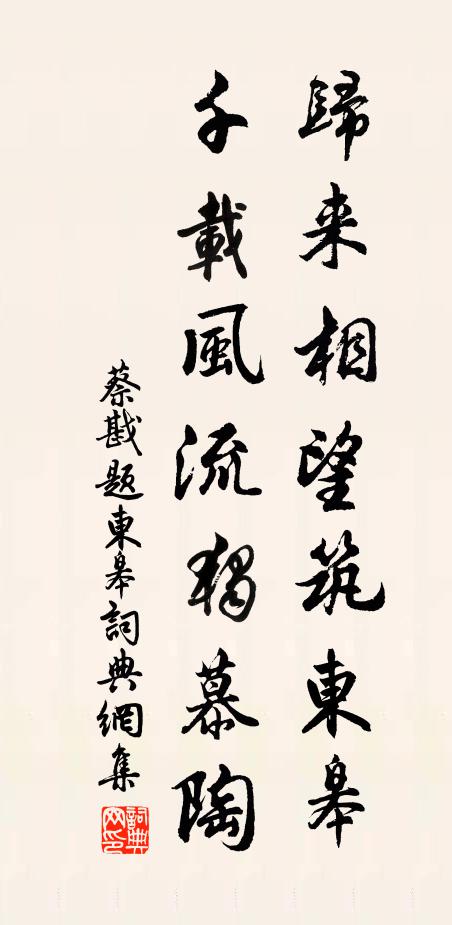 歸来相望筑東皋
千載風流獨慕陶
蔡戡題東皋詞典網集
詞典網印